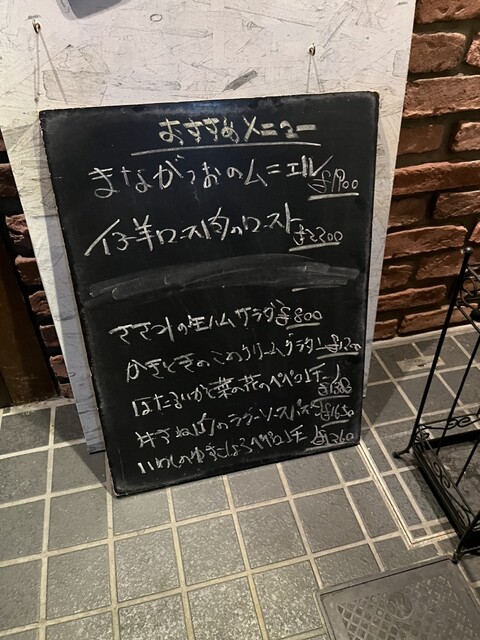 おすすめメニュー
まながつおのムニエル ¥1900
仔羊ロース肉のロースト ¥2300
ささつの生ハムサラダ ¥800
かきときのこのクリームグラタン
ほたるいかと菜の花のペペロンチーノ
肉のラグーソースパスタ ¥1650
いわしのゆずこしょうペペロンチーノ ¥1360